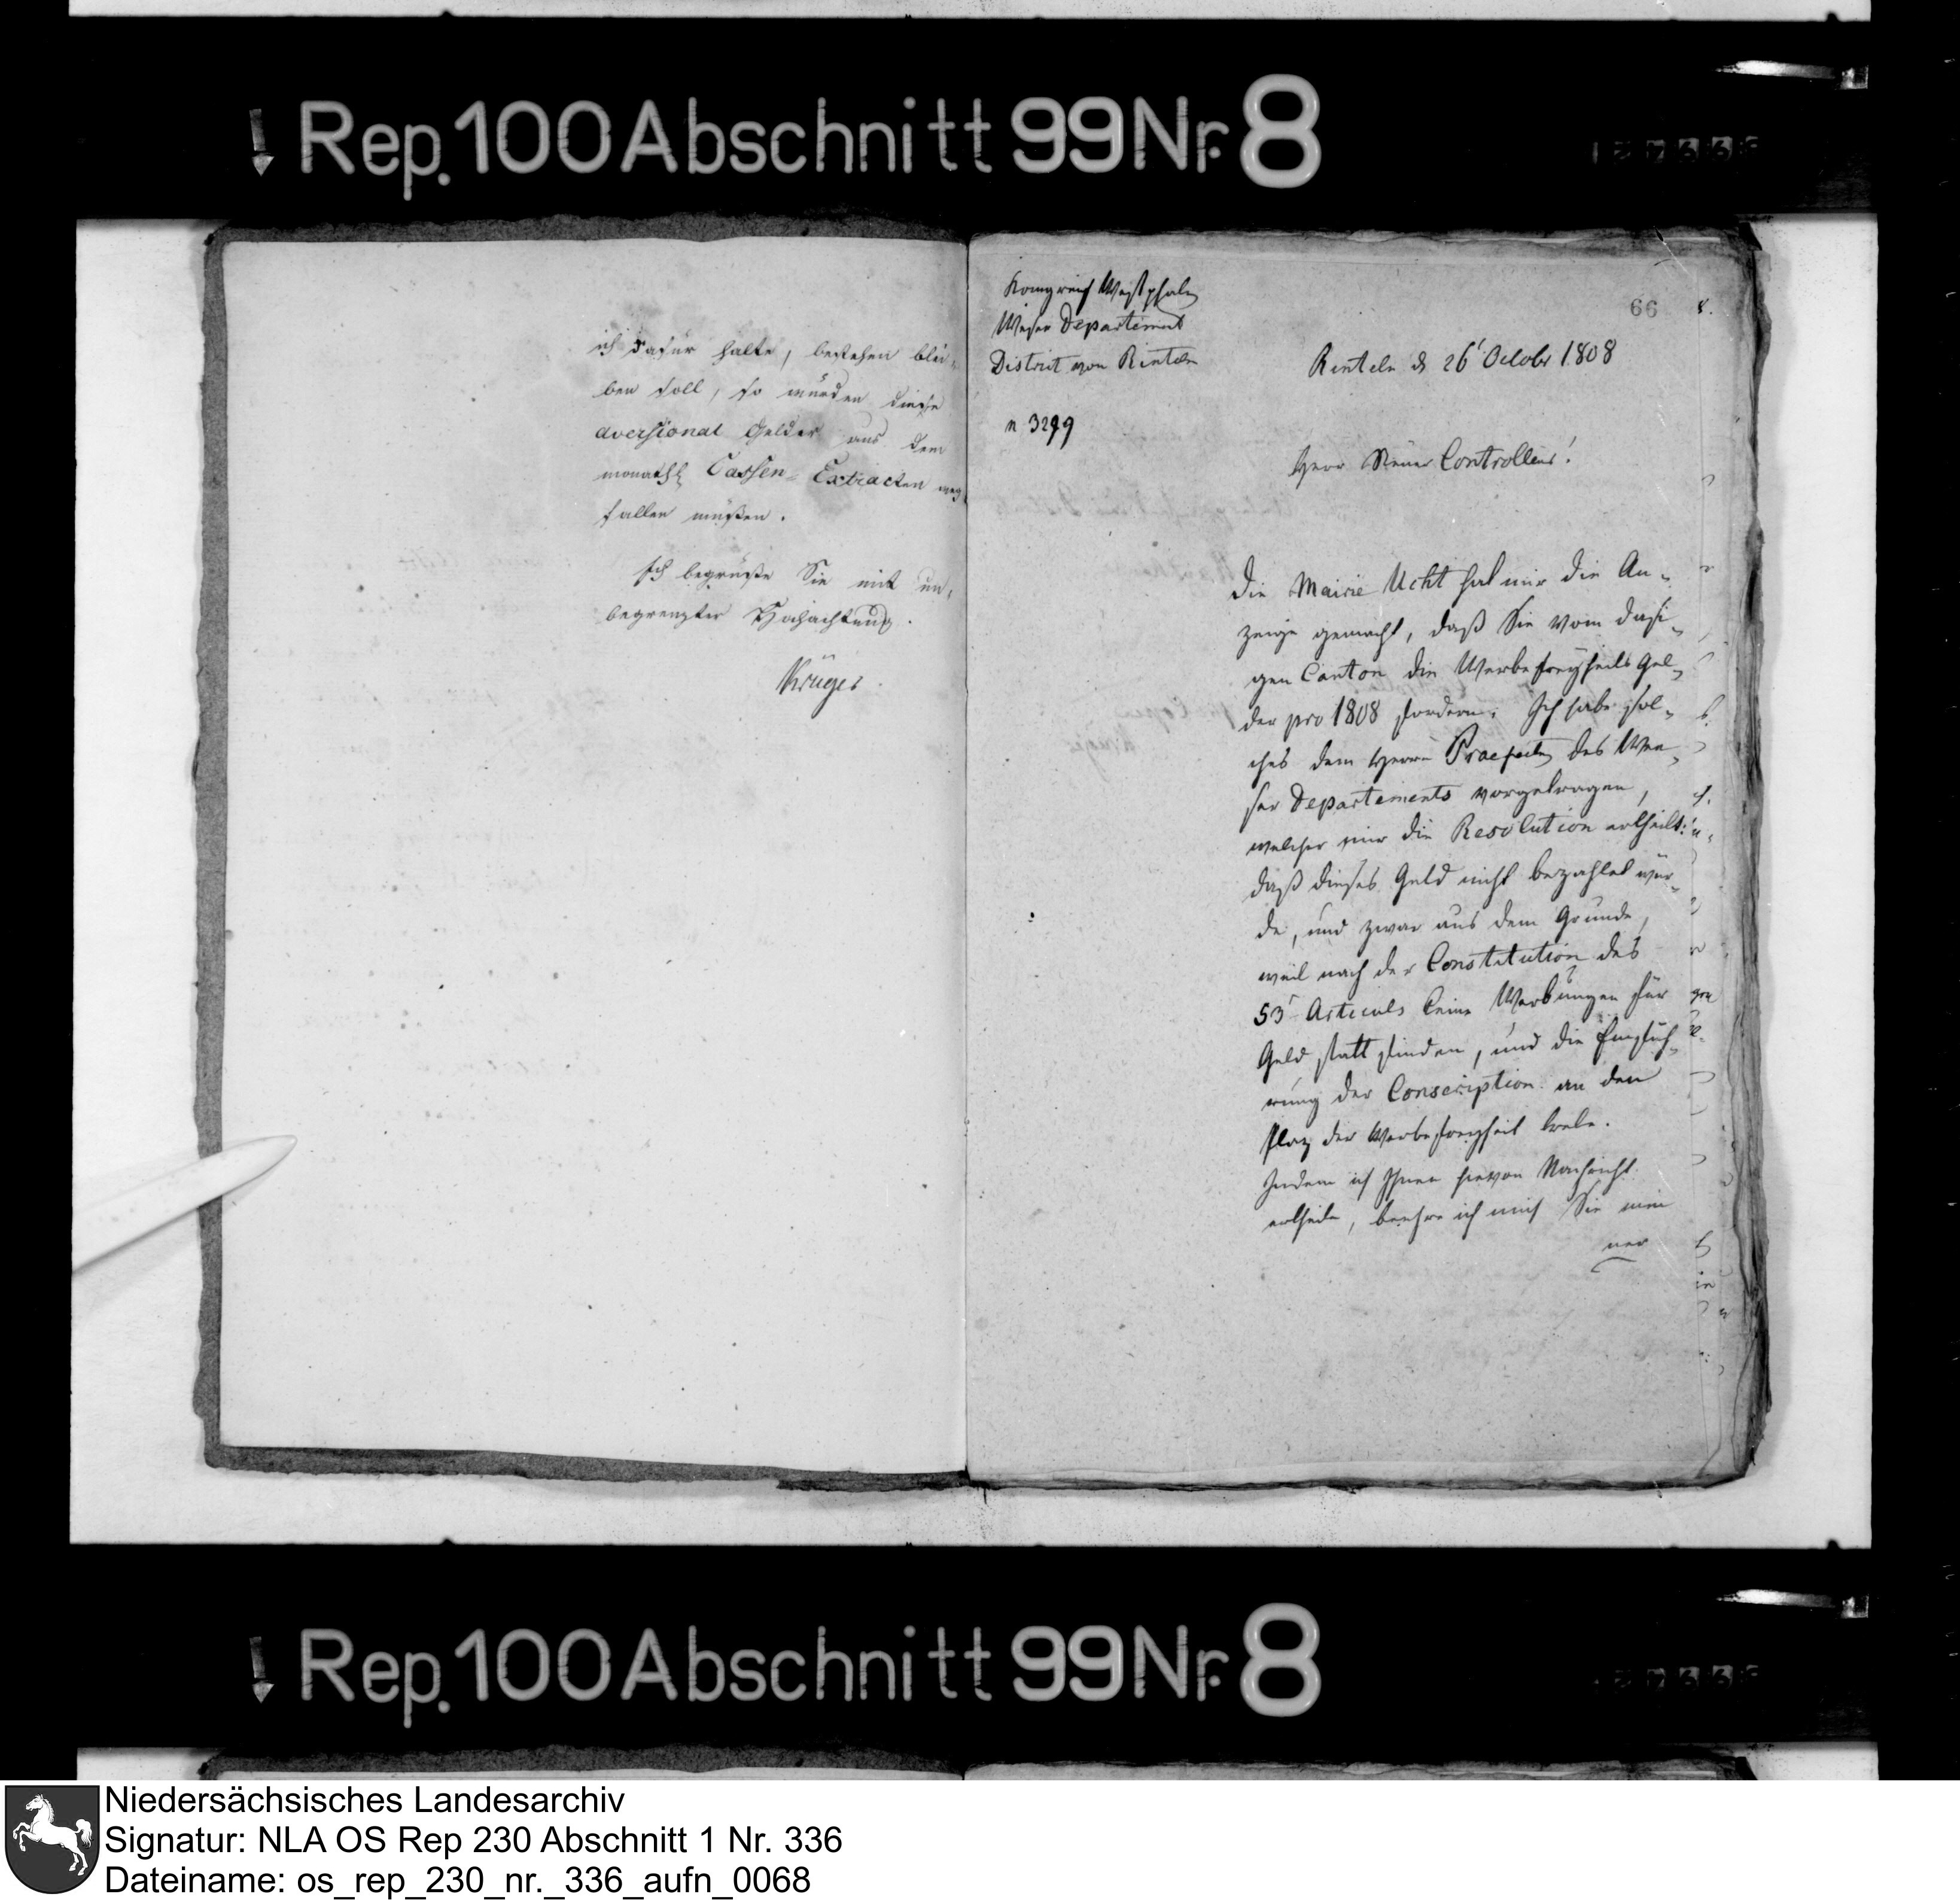 Rep. 100 Abschnitt 99 Nr. 8
ich dafür halte, bestehen blei-
ben soll, so würden diese
aversional Gelder aus dem
monathl Cassen-Extracten weg
fallen müßen.
Ich begrüße Sie mit un-
begrenzter Hochachtung.
Krüger
66
Königreich Westphalen
Weser Departement
District von Rinteln
n 3299
Rinteln d 26t October 1808
Herr Steuer Controlleur!
Die Mairie Ucht hat mir die An-
zeige gemacht, daß Sie vom dasi-
gen Canton die Werbefreyheits Gel-
der pro 1808 fordern. Ich habe sol-
ches dem Herrn Praefecten des We-
ser Departements vorgetragen,
welcher mir die Resolution ertheilt:
daß dieses Geld nicht bezahlet wür-
de, und zwar aus dem Grunde,
weil nach der Constitution des
53t Articuls keine Werbungen für
Geld statt finden, und die Einfüh-
rung der Conscription an den
Platz der Werbefreyheit trete.
Indem ich Ihnen hievon Nachricht
ertheile, beehre ich mich Sie mei
ner
Rep. 100 Abschnitt 99 Nr. 8
Niedersächsisches Landesarchiv
Signatur: NLA OS Rep 230 Abschnitt 1 Nr. 336
Dateiname: os_rep_230_nr._336_aufn_0068